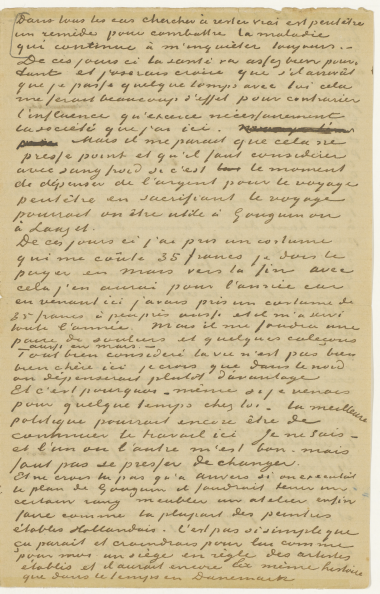 Dans tous les cas chercher à rester vrai est peutêtre
un remède pour combattre la maladie
qui continue à m'inquiéter toujours. –
De ces jours ci ta santé va assez bien pour-
tant et j'oserais croire que s'il
que je passe quelque temps avec toi cela
me ferait beaucoup d'effet pour contrarier
l'influence qu'exerce nécessairement
la société que j'ai ici.
Mais il me parait que cela ne
presse point et qu'il faut considérer
avec sang froid si c'est le moment
de dépenser de l'argent pour le voyage
peutêtre en sacrifiant le voyage
pourrait on être utile à Gauguin ou
à Lauzet.
De ces jours ci j'ai pris un costume
qui me coûte 35 francs je dois le
payer en mars vers la fin avec
cela j'en aurai pour l'année car
en venant ici j'avais pris un costume de
35 francs à peu près aussi et il m'a servi
toute l'année. Mais il me faudra une
paire de souliers et quelques caleçons
aussi en mars. –
Tout bien considéré la vie n'est pas bien
bien chère ici je crois que dans le nord
on dépenserait plutôt davantage
Et c'est pourquoi – même si je venais
pour quelque temps chez toi – la meilleure
politique pourrait encore être de
continuer le travail ici Je ne sais –
et l'un ou l'autre m'est bon – mais
faut pas se presser de changer.
Et ne crois tu pas qu'à Anvers si on exécutât
le plan de Gauguin il faudrait tenir un
certain rang meubler un atelier enfin
faire comme la plupart des peintres
établis Hollandais. C'est pas si simple que
ça parait et craindrais pour lui comme
pour moi un siège en règle des artistes
établis et il aurait encore la même histoire
que dans le temps en Danemark